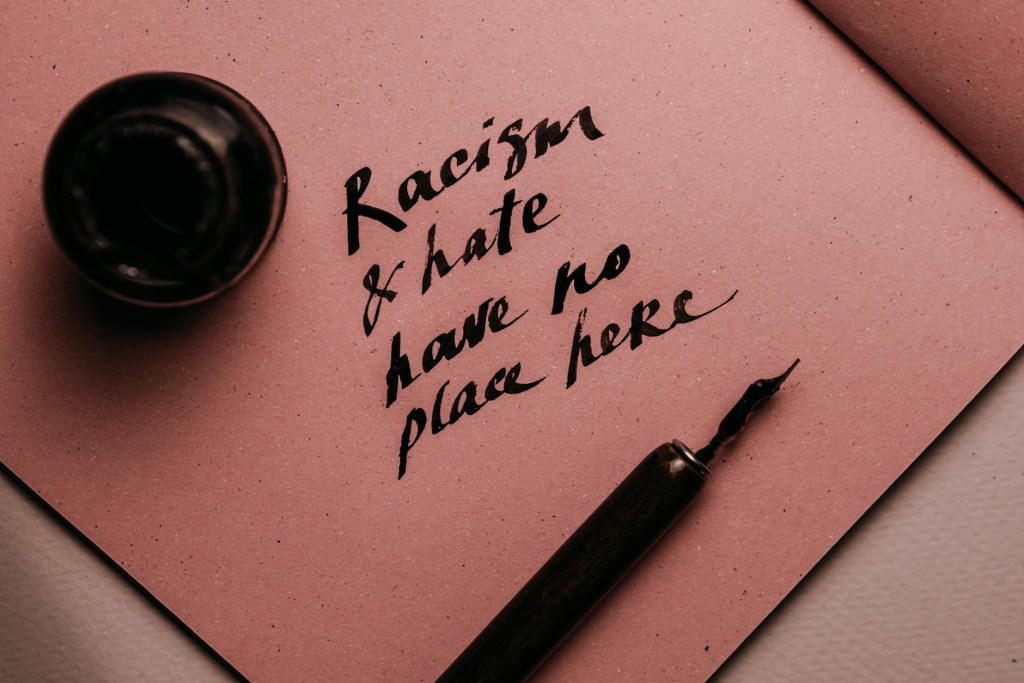 Racism
& hate
have no
place here